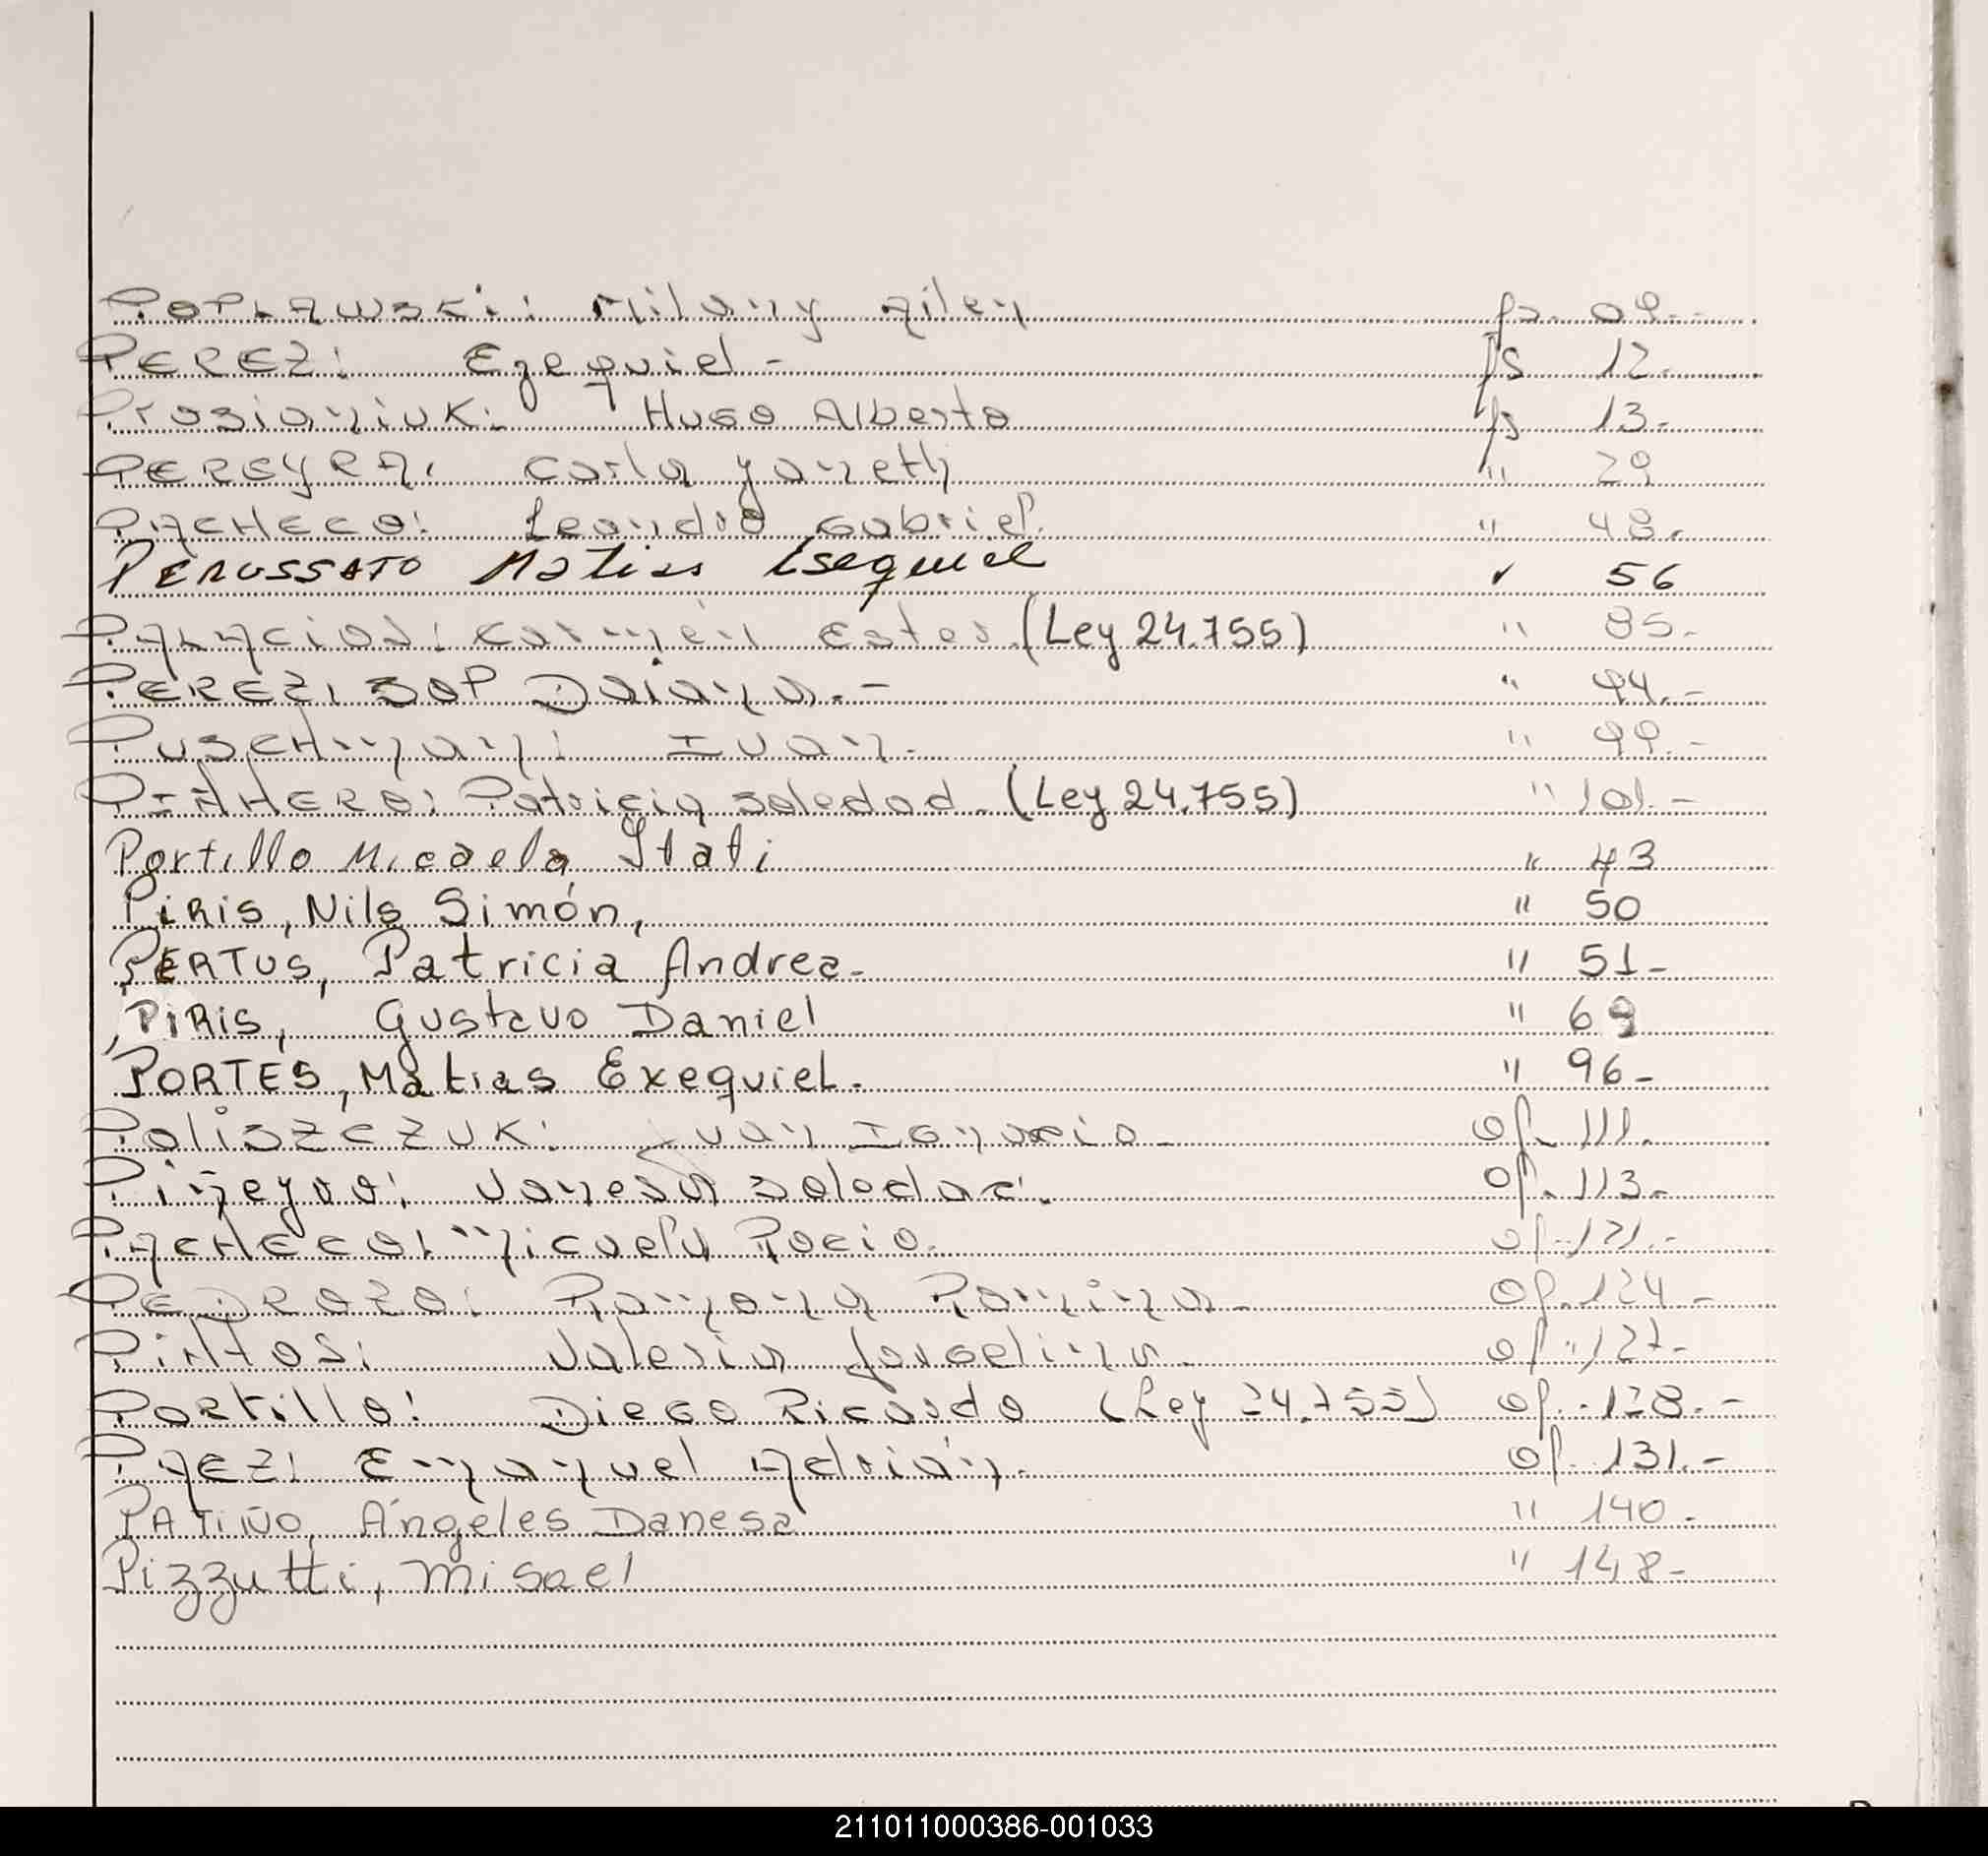 POPLAWSKI: Milany Ailen fs. 09.-
PEREZ: Ezequiel - fs 12.
Prosianiuk: Hugo Alberto fs 13.-
PEREYRA: Carla Yaneth " 29
PACHECO: Leandro Gabriel. " 48.
PERUSSATO Matias Esequiel " 56
PALACIOS: Carmen Ester. (Ley 24.755) " 85.-
PEREZ: SOP Daiana.- " 94.-
PUSCHmann: Ivan. " 99.-
PIÑHERO: Patricia Soledad. (Ley 24.755) " 101.-
Portillo Micaela Itati " 43
PIRIS, Nils Simón, " 50
PERTUS, Patricia Andrea- " 51-
PIRIS, Gustavo Daniel " 69
PORTES, Matias Exequiel. " 96-
Poliszczuk: Juan Ignacio. of. 111.
Piñeyro: Vanesa Soledad. of. 113.-
PACHECO: Micaela Rocio. of. 121.-
PEDROZO: Ramona Romina. of. 124.-
PINTOS: Valeria Jorgelina. of. 127.-
Portillo: Diego Ricardo (Ley 24.755) of. 128.-
PAEZ: Emanuel Adrián. of. 131.-
PATIÑO, Ángeles Danesa " 140.
Pizzutti, Misael " 148-
211011000386-001033